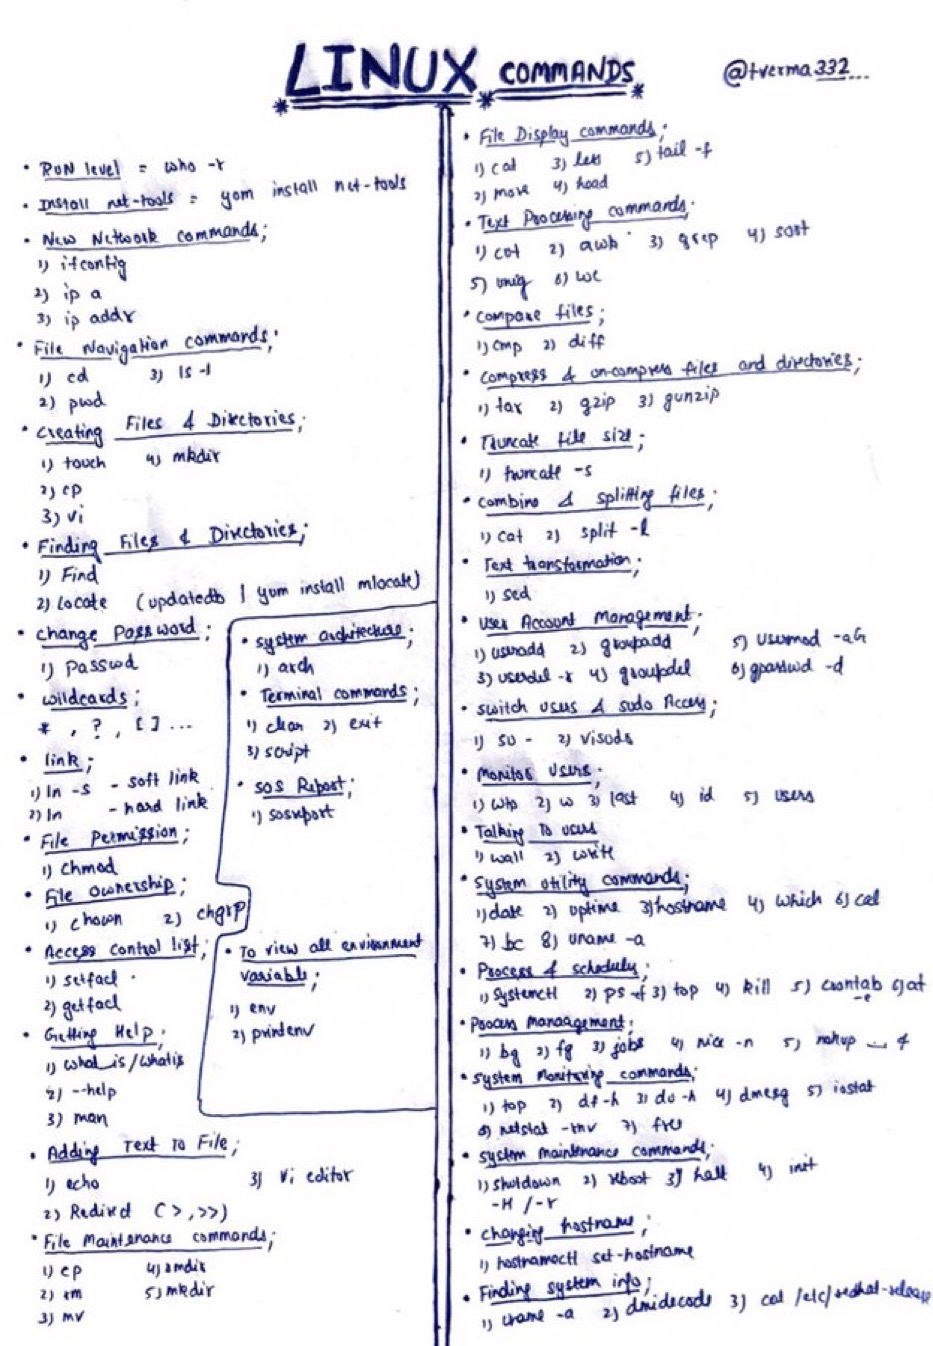 LINUX COMMANDS
@tverma332...
• RUN level = who -r
• Install net-tools = yum install net-tools
• New Network commands;
1) ifconfig
2) ip a
3) ip addr
• File Navigation commands;
1) cd 3) ls -l
2) pwd
• Creating Files & Directories;
1) touch 4) mkdir
2) cp
3) vi
• Finding Files & Directories;
1) Find
2) Locate (updatedb | yum install mlocate)
• Change Password;
1) Passwd
• wildcards;
* , ? , [ ] ...
• link;
1) ln -s - soft link
2) ln - hard link
• File Permission;
1) Chmod
• File Ownership;
1) chown 2) chgrp
• Access control list;
1) setfacl
2) getfacl
• Getting Help;
1) what_is/whatis
2) --help
3) man
• System architecture;
1) arch
• Terminal commands;
1) clear 2) exit
3) script
• SOS Report;
1) sosreport
• To view all environment
variable;
1) env
2) printenv
• Adding Text To File;
1) echo 3) Vi editor
2) Redirect (>,>>)
• File Maintenance commands;
1) cp 4) rmdir
2) rm 5) mkdir
3) mv
• File Display commands;
1) cat 3) less 5) tail -f
2) more 4) head
• Text Processing commands;
1) cut 2) awk 3) grep 4) sort
5) uniq 6) wc
• compare files;
1) cmp 2) diff
• compress & un-compress files and directories;
1) tar 2) gzip 3) gunzip
• Truncate file size;
1) truncate -s
• combine & splitting files;
1) cat 2) split -l
• Text transformation;
1) sed
• User Account Management;
1) useradd 2) groupadd 5) usermod -aG
3) userdel -r 4) groupdel 6) gpasswd -d
• switch users & sudo Access;
1) su - 2) visudo
• Monitor Users;
1) who 2) w 3) last 4) id 5) users
• Talking To users
1) wall 2) write
• System utility commands;
1) date 2) uptime 3) hostname 4) which 6) cal
7) bc 8) uname -a
• Process & schedule;
1) Systemctl 2) ps -f 3) top 4) kill 5) crontab -e 6) at
• Process management;
1) bg 2) fg 3) jobs 4) nice -n 5) nohup __ &
• System Monitoring commands;
1) top 2) df -h 3) du -h 4) dmesg 5) iostat
6) netstat -rnv 7) free
• system maintenance commands;
1) shutdown 2) reboot 3) halt 4) init
-H /-r
• changing hostname;
1) hostnamectl set-hostname
• Finding system info;
1) uname -a 2) dmidecode 3) cat /etc/redhat-release